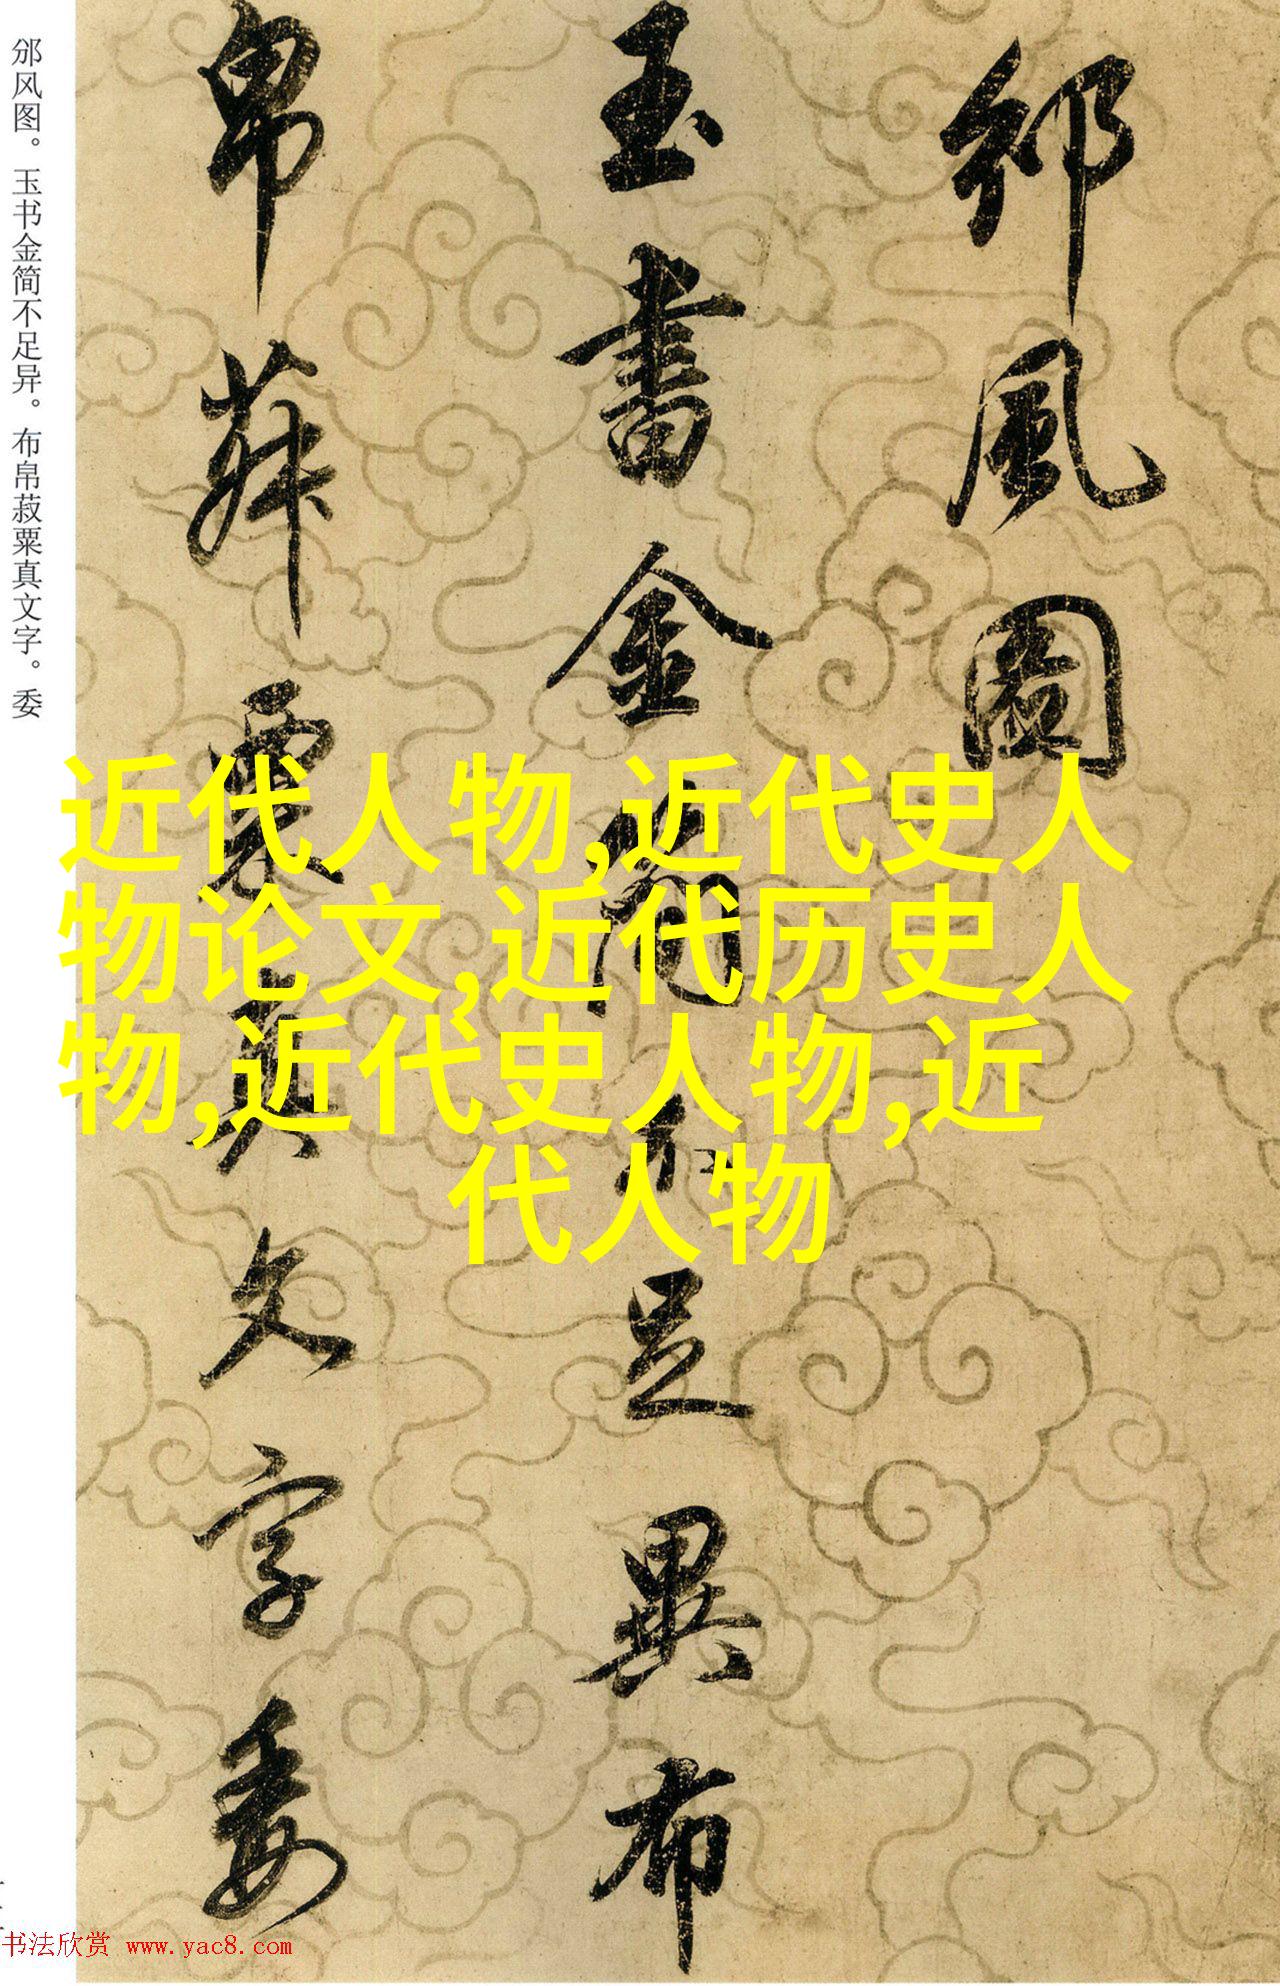 邠風圖
玉書金簡不足異布
帛菽粟真文字委
邠风图。玉书金简不足异。布帛菽粟真文字。委
近代人物,近代史人
物论文,近代历史人
物,近代史人物,近
代人物
书法欣赏 www.yac8.com